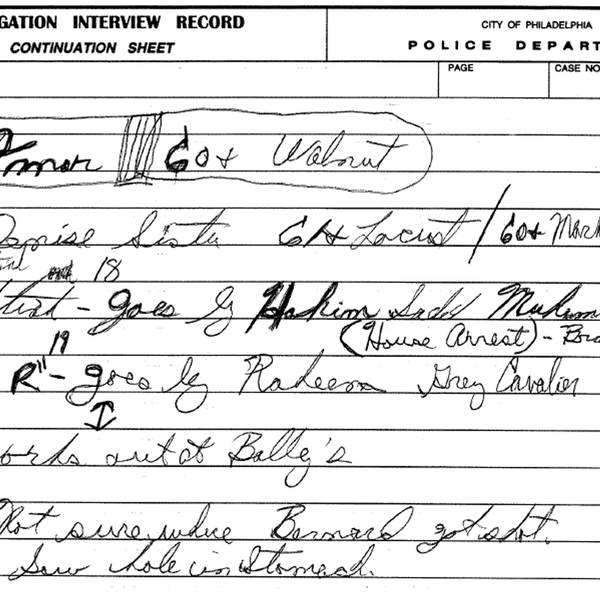 GATION INTERVIEW RECORD
CONTINUATION SHEET
CITY OF PHILADELPHIA
POLICE DEPART
PAGE
CASE NO
60+ Walnut
Sister 61st Locust / 60+ Mark
18
- goes by Hakim Muham
(House Arrest) - Bro
19
R" - goes by Raheem Grey Cavalier
orks out at Bally's
Not sure where Bernard got shot.
Saw hole in Stomach.